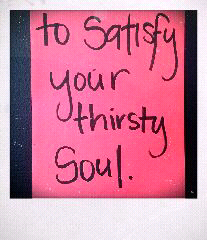 to Satisfy
your
thirsty
Soul.